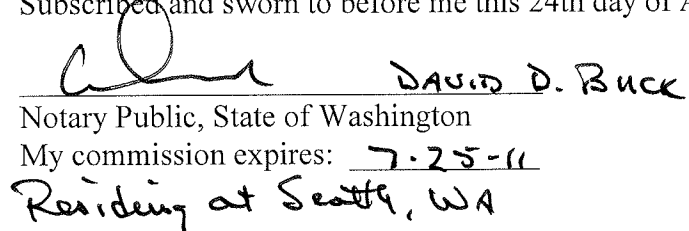 Subscribed and sworn to before me this 24th day of A
DAVID D. BUCK
Notary Public, State of Washington
My commission expires: 7-25-11
Residing at Seattle, WA